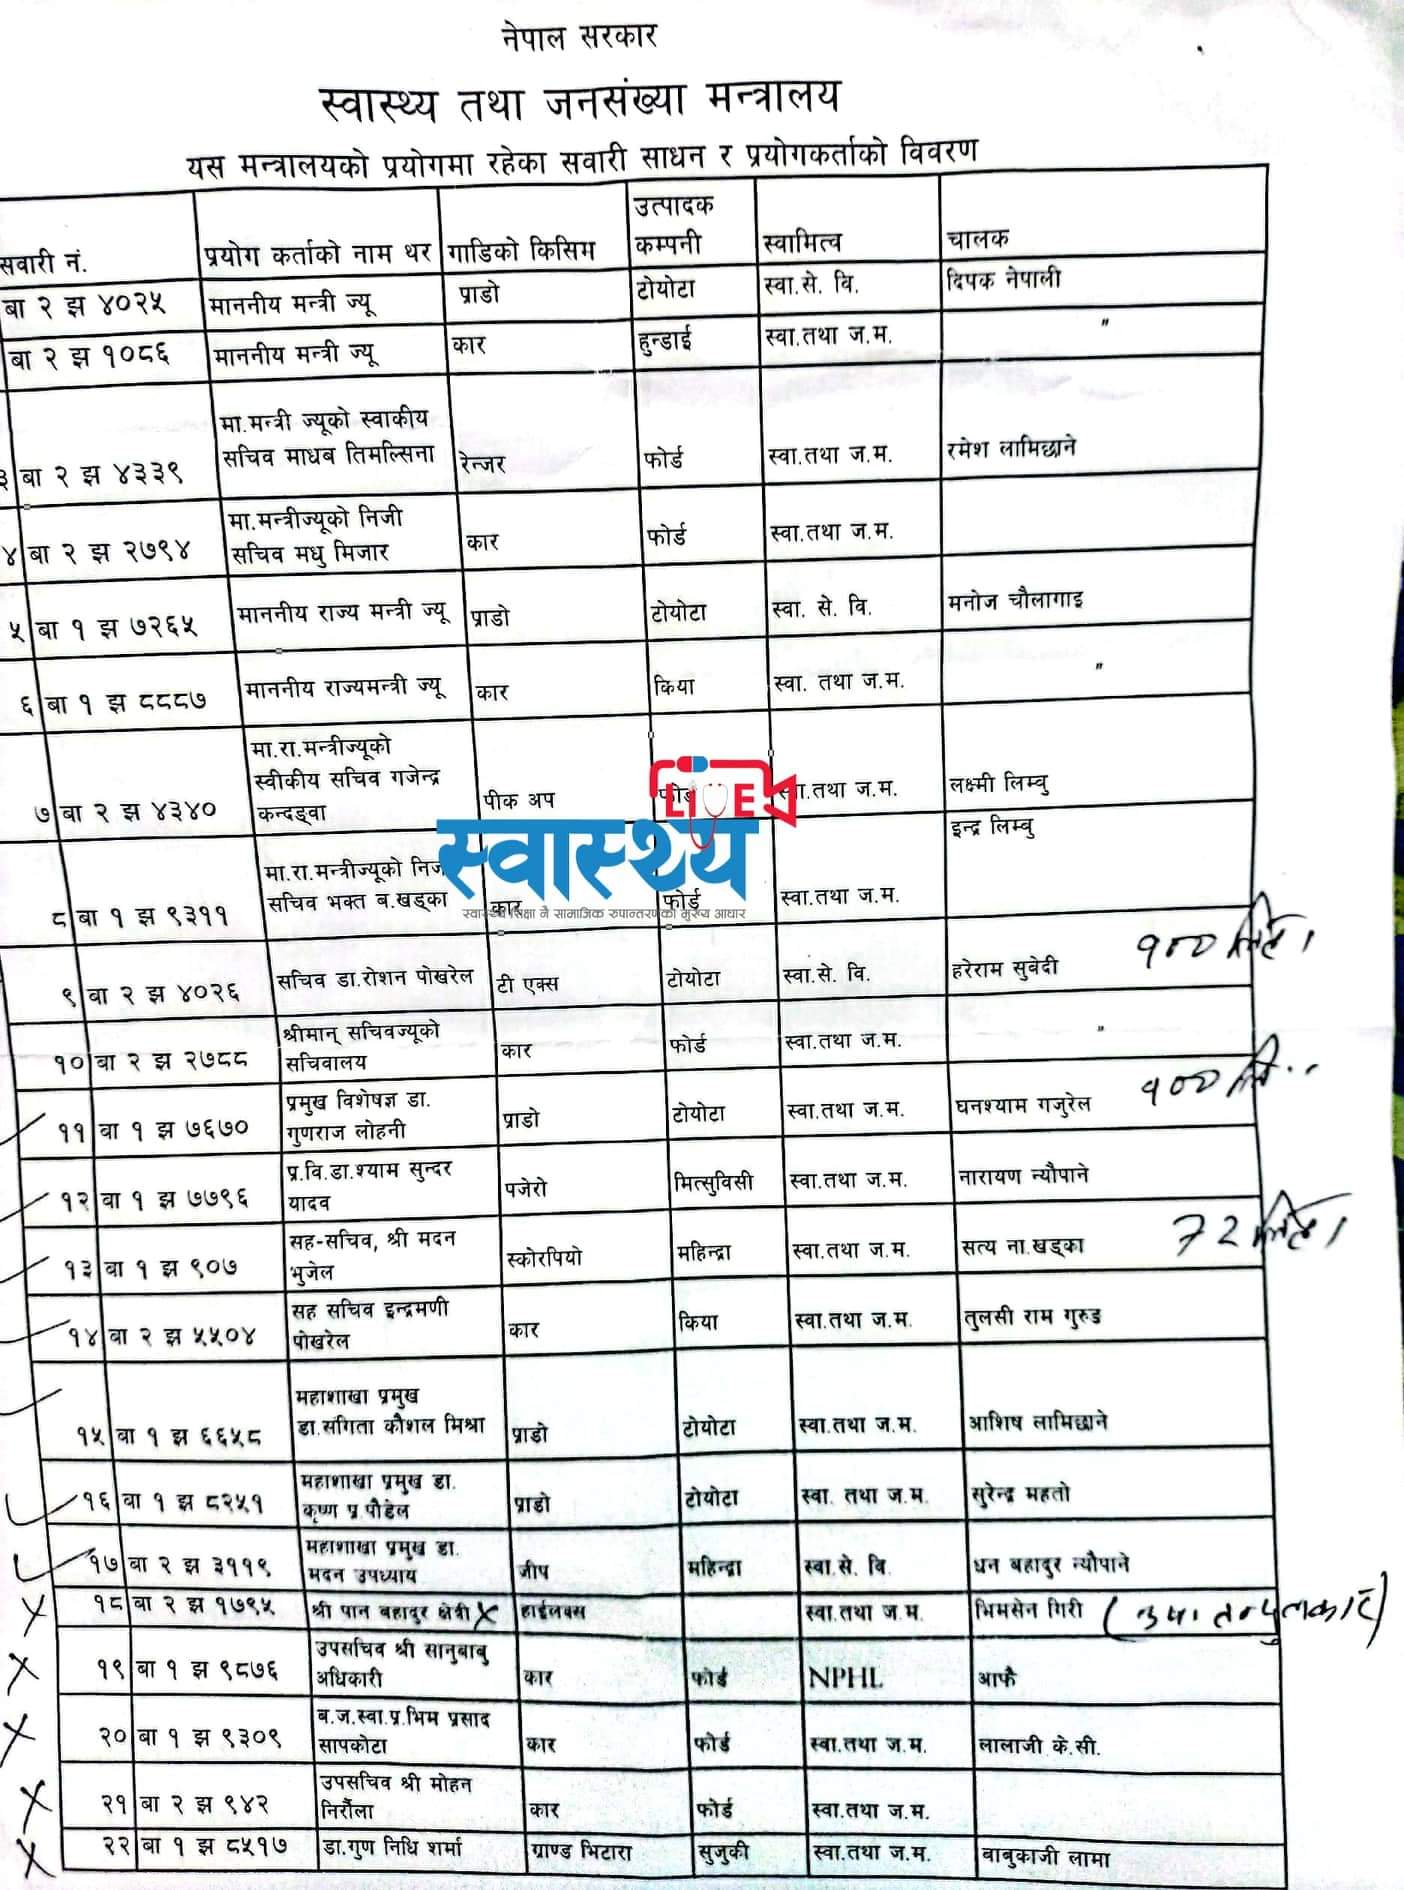 नेपाल सरकार
स्वास्थ्य तथा जनसंख्या मन्त्रालय
यस मन्त्रालयको प्रयोगमा रहेका सवारी साधन र प्रयोगकर्ताको विवरण
सवारी नं. प्रयोग कर्ताको नाम थर गाडिको किसिम उत्पादक कम्पनी स्वामित्व चालक
बा २ झ ४०२५ माननीय मन्त्री ज्यू प्राडो टोयोटा स्वा.से. वि. दिपक नेपाली
बा २ झ १०८६ माननीय मन्त्री ज्यू कार हुन्डाई स्वा.तथा ज.म. "
३ बा २ झ ४३३९ मा.मन्त्री ज्यूको स्वाकीय सचिव माधब तिमल्सिना रेन्जर फोर्ड स्वा.तथा ज.म. रमेश लामिछाने
४ बा २ झ २७९४ मा.मन्त्रीज्यूको निजी सचिव मधु मिजार कार फोर्ड स्वा.तथा ज.म.
५ बा १ झ ७२६५ माननीय राज्य मन्त्री ज्यू प्राडो टोयोटा स्वा. से. वि. मनोज चौलागाइ
६ बा १ झ ८८८७ माननीय राज्यमन्त्री ज्यू कार किया स्वा. तथा ज.म. "
७ बा २ झ ४३४० मा.रा.मन्त्रीज्यूको स्वीकीय सचिव गजेन्द्र कन्दङ्वा पीक अप फोर्ड स्वा.तथा ज.म. लक्ष्मी लिम्बु
LIVE
स्वास्थ्य
स्वास्थ्य शिक्षा नै सामाजिक रुपान्तरणको मुख्य आधार
८ बा १ झ ९३११ मा.रा.मन्त्रीज्यूको निज सचिव भक्त ब.खड्का कार फोर्ड स्वा.तथा ज.म. इन्द्र लिम्बु
९ बा २ झ ४०२६ सचिव डा.रोशन पोखरेल टी एक्स टोयोटा स्वा.से. वि. हरेराम सुबेदी १००
१० बा २ झ २७८८ श्रीमान् सचिवज्यूको सचिवालय कार फोर्ड स्वा.तथा ज.म. "
११ बा १ झ ७६७० प्रमुख विशेषज्ञ डा. गुणराज लोहनी प्राडो टोयोटा स्वा.तथा ज.म. घनश्याम गजुरेल १००
१२ बा १ झ ७७९६ प्र.वि.डा.श्याम सुन्दर यादव पजेरो मित्सुविसी स्वा.तथा ज.म. नारायण न्यौपाने
१३ बा १ झ ९०७ सह-सचिव, श्री मदन भुजेल स्कोरपियो महिन्द्रा स्वा.तथा ज.म. सत्य ना.खड्का 72
१४ बा २ झ ५५०४ सह सचिव इन्द्रमणी पोखरेल कार किया स्वा.तथा ज.म. तुलसी राम गुरुड
१५ बा १ झ ६६५८ महाशाखा प्रमुख डा.संगिता कौशल मिश्रा प्राडो टोयोटा स्वा.तथा ज.म. आशिष लामिछाने
१६ बा १ झ ८२५१ महाशाखा प्रमुख डा. कृष्ण प्र.पौडेल प्राडो टोयोटा स्वा. तथा ज.म. सुरेन्द्र महतो
१७ बा २ झ ३११९ महाशाखा प्रमुख डा. मदन उपध्याय जीप महिन्द्रा स्वा.से. वि. धन बहादुर न्यौपाने
१८ बा २ झ १७९५ श्री पान बहादुर क्षेत्री हाईलक्स स्वा.तथा ज.म. भिमसेन गिरी
१९ बा १ झ ९८७६ उपसचिव श्री सानुबाबु अधिकारी कार फोर्ड NPHL आफै
२० बा १ झ ९३०९ ब.ज.स्वा.प्र.भिम प्रसाद सापकोटा कार फोर्ड स्वा.तथा ज.म. लालाजी के.सी.
२१ बा २ झ ९४२ उपसचिव श्री मोहन निरौंला कार फोर्ड स्वा.तथा ज.म.
२२ बा १ झ ८५१७ डा.गुण निधि शर्मा ग्राण्ड भिटारा सुजुकी स्वा.तथा ज.म. बाबुकाजी लामा